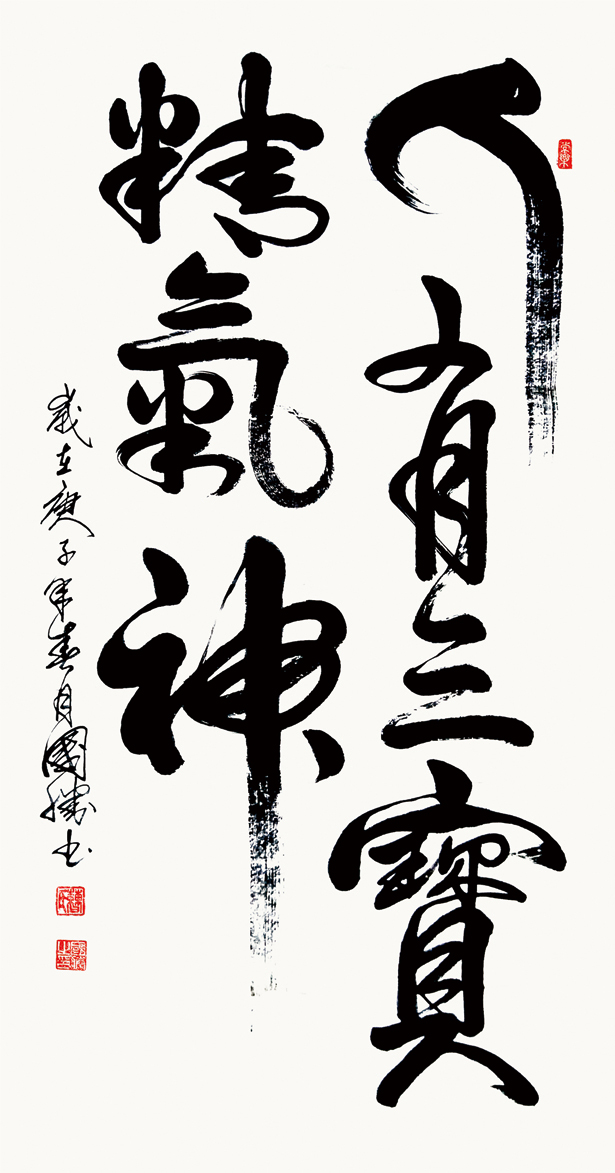 人有三寶
精氣神
歲在庚子年春月國勝書